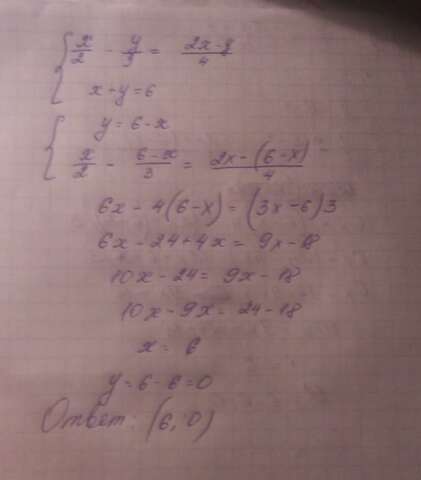 x/2 - y/3 = (2x-y)/4
x+y=6
y=6-x
x/2 - (6-x)/3 = (2x-(6-x))/4
6x-4(6-x)=(3x-6)3
6x-24+4x=9x-18
10x-24=9x-18
10x-9x=24-18
x=6
y=6-6=0
Ответ: (6, 0)